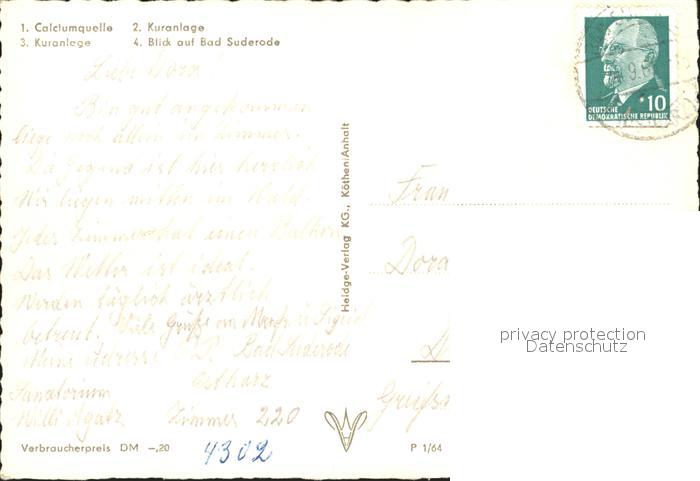 1. Calciumquelle 2. Kuranlage
3. Kuranlage 4. Blick auf Bad Suderode
Liebe Dora!
Bin gut angekommen
liege noch allein im Zimmer.
Die Gegend ist hier herrlich
Wir liegen mitten im Wald.
Jedes Zimmer hat einen Balkon
Das Wetter ist ideal.
Werden täglich ärztlich
betreut. Viele Grüße an u. Sigrid
Meine Adresse: Bad Suderode
Ostharz
Sanatorium
Willi Agatz Zimmer 220
Verbraucherpreis DM –,20
4302
Heidge-Verlag KG., Köthen/Anhalt
P 1/64
DEUTSCHE
DEMOKRATISCHE REPUBLIK
10
Frau
Dora
privacy protection
Datenschutz